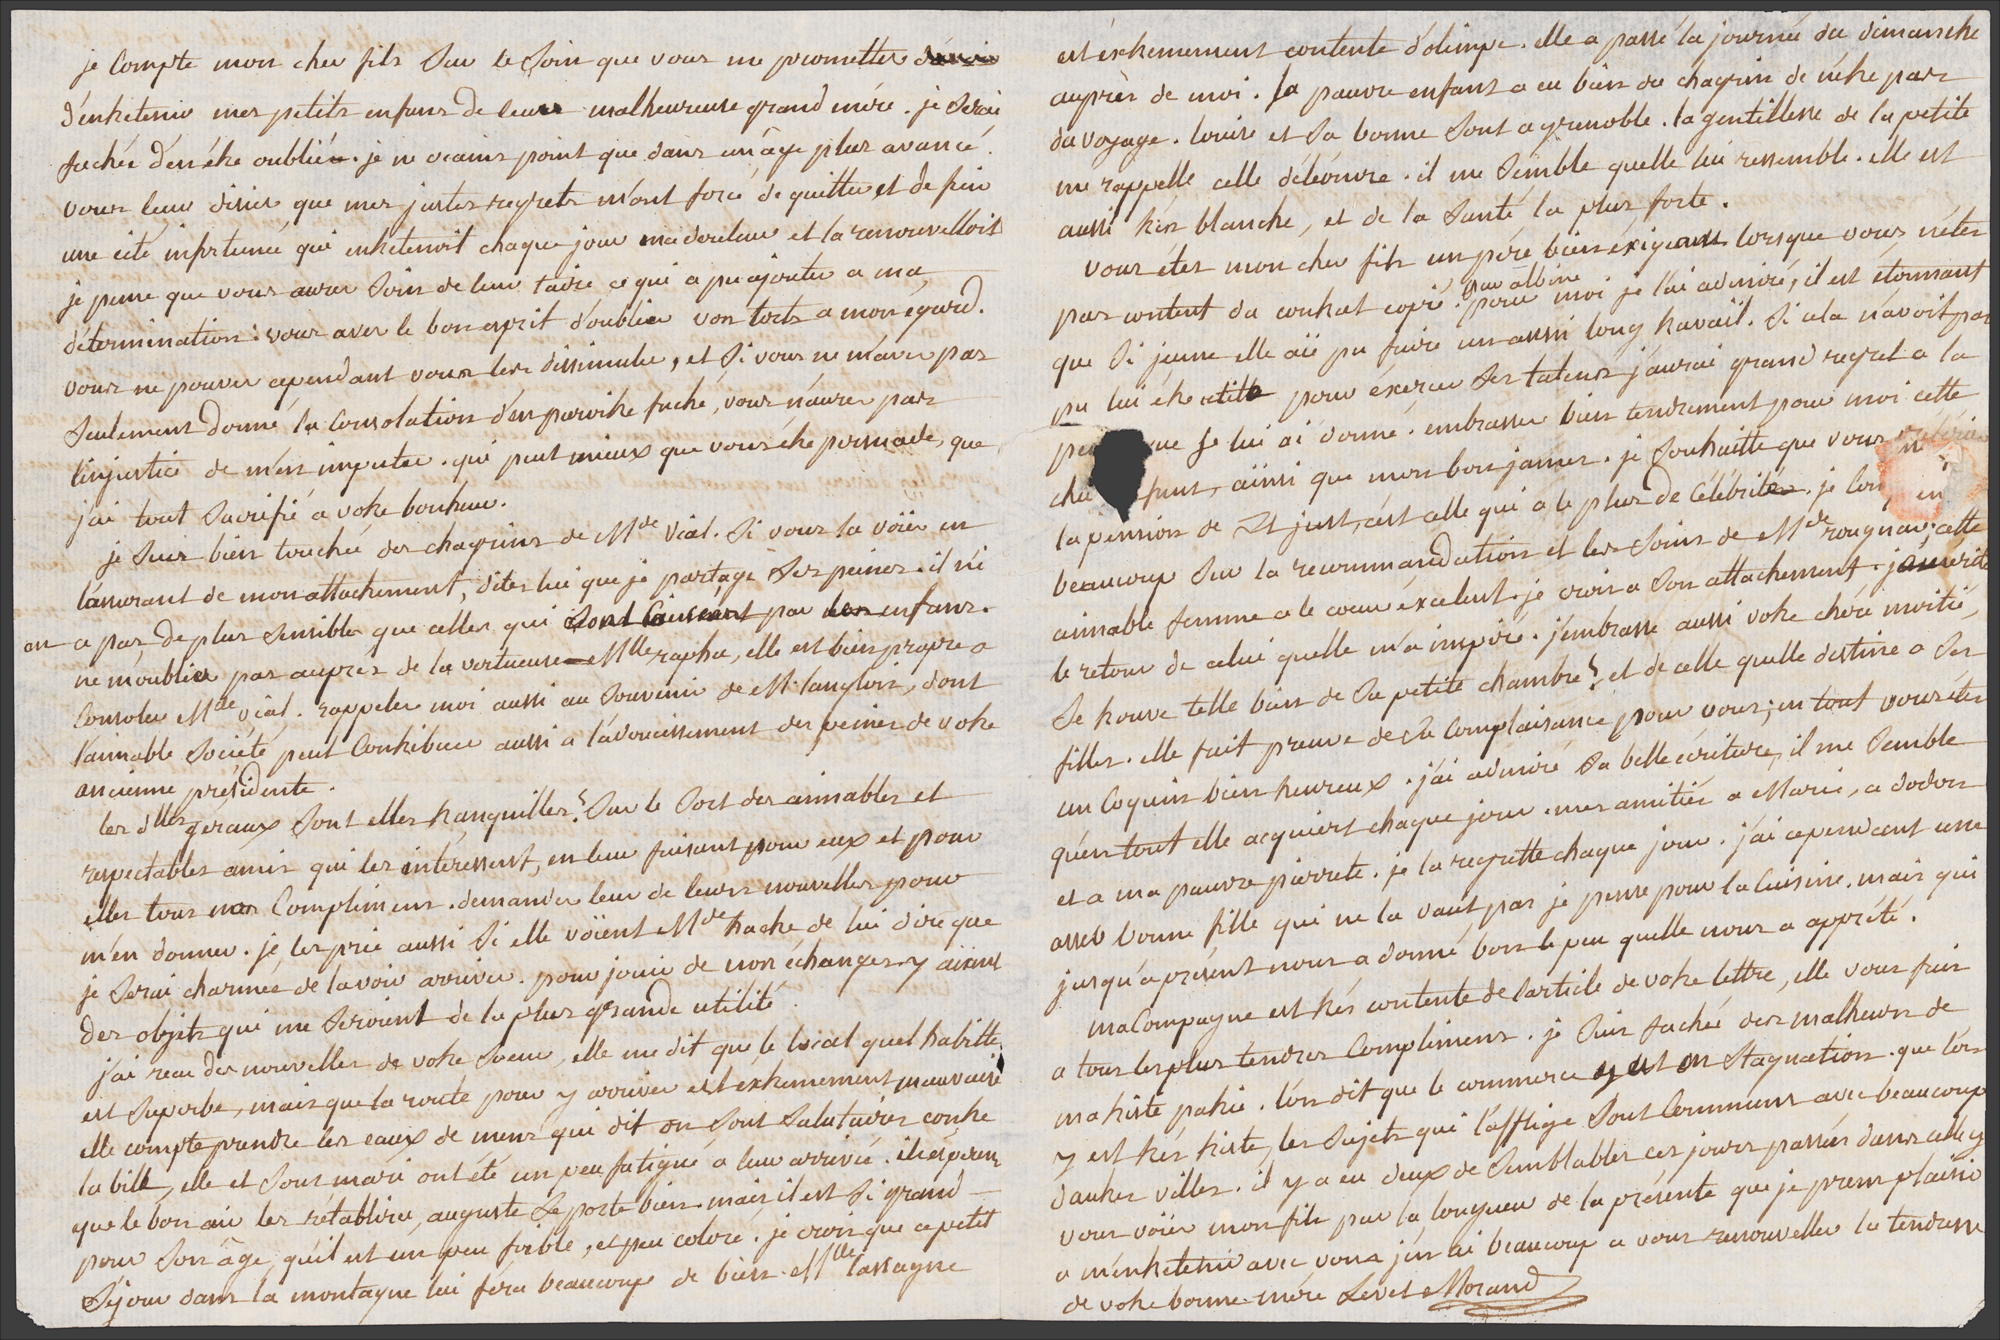 je Compte mon cher fils Sur le Soin que vous me promettez
d'entretenir mes petits enfans de leur malheureuse grand mére. je Serai
fachée d'en étre oubliée. je ne crains point que dans un âge plus avancé
vous leur disiez que mes justes regrets m'ont forcé de quitter et de fuir
une cité infortunée qui entretenoit chaque jour ma douleur et la renouvelloit
je pense que vous aurez Soin de leur taire ce qui a pu ajouter a ma
détermination: vous avez le bon esprit d'oublier vos torts a mon égard.
vous ne pouvez cependant vous les dissimuler, et Si vous ne m'avez pas
Seulement donné la Consolation d'en paroitre faché, vous n'aurez pas
l'injustice de m'en imputer. qui peut mieux que vous étre persuadé, que
j'ai tout Sacrifié a votre bonheur.
je Suis bien touchée des chagrins de Mde Vial. Si vous la voïez en
l'assurant de mon attachement, dites lui que je partage Ses peines. il n'i
en a pas de plus Sensibles que celles qui Sont Causées par les enfans.
ne m'oubliez pas auprés de la vertueuse Mlle rapha, elle est bien propre a
Consoler Mde Vial. rappelez moi aussi au Souvenir de M. langlois, dont
l'aimable Société peut Contribuer aussi a l'adoucissement des peines de votre
ancienne présidente.
les dlles geraux Sont elles tranquilles? Sur le Sort des aimables et
respectables amis qui les intéressent, en leur faisant pour eux et pour
elles tous mes Complimens. demandez leur de leurs nouvelles pour
m'en donner. je les prie aussi Si elle voïent Mde hache de lui dire que
je Serai charmée de la voir arriver. pour jouir de nos échanges y aïant
des objets qui me Seroient de la plus grande utilité.
j'ai reçu des nouvelles de votre Soeur, elle me dit que le local quel habitte
est Superbe, mais que la route pour y arriver est extremement mauvaise
elle compte prendre les eaux de mens qui dit on Sont Salutaires contre
la bile, elle et Sont mari ont été un peu fatigué a leur arrivée. il espére
que le bon air les rétablira, auguste Se porte bien mais il est Si grand
pour Son âge, qu'il est un peu foible, et peu coloré. je crois que ce petit
Séjour dans la montagne lui féra beaucoup de bien. Mlle lassagne
est éxtremement contente d'olimpe. elle a passé la journée du dimanche
auprès de moi. la pauvre enfant a eu bien du chagrin de n'étre pas
du voyage. louise et Sa bonne Sont a grenoble. la gentillesse de la petite
me rappelle celle d'éléonore. il me Semble quelle lui ressemble. elle est
aussi trés blanche, et de la Santé la plus forte.
vous étes mon cher fils un pére bien éxigeant lorsque vous n'étes
pas content du contrat copié par albine. pour moi je l'ai admiré, il est étonnant
que Si jeune elle aïe pu faire un aussi long travail. Si cela n'avoit pas
pu lui étre utile pour éxercer Ses talens j'aurai grand regret a la
que je lui ai donné. embrassez bien tendrement pour moi cette
ainsi que mon bon james. je Souhaitte que vous
la pension de St just, c'est celle qui a le plus de Célébrité. je
beaucoup Sur la recommandation et les Soins de Mde rougnar, cette
aimable femme a le coeur éxcelent. je crois a Son attachement.
le retour de celui quelle m'a inspiré. j'embrasse aussi votre chére moitié,
Se trouve telle bien de Sa petite chambre? et de celle quelle destine a Ses
filles. elle fait preuve de Sa Complaisance pour vous, en tout vous étes
un Coquin bien heureux. j'ai admiré Sa belle écriture, il me Semble
qu'en tout elle acquiert chaque jour. mes amitiés a Marie, a dodon
et a ma pauvre pierrete. je la regrette chaque jour. j'ai cependant une
assez bonne fille qui ne la vaut pas je pense pour la Cuisine. mais qui
jusqu'a présent nous a donné bon le peu quelle nous a appreté.
ma Compagne est trés contente de l'article de votre lettre, elle vous fais
a tous les plus tendres Complimens. je Suis fachée des malheurs de
ma triste patrie. l'on dit que le commerce y est en Stagnation. que l'on
y est trés triste, les Sujets qui l'afflige Sont Communs avec beaucoup
d'autres villes. il y a eu deux de Semblables ces jours passés dans celle cy
vous voïez mon fils par la longueur de la présente que je prens plaisir
a m'entretenir avec vous j'en ai beaucoup a vous renouveller la tendresse
de votre bonne mére Levet Morand